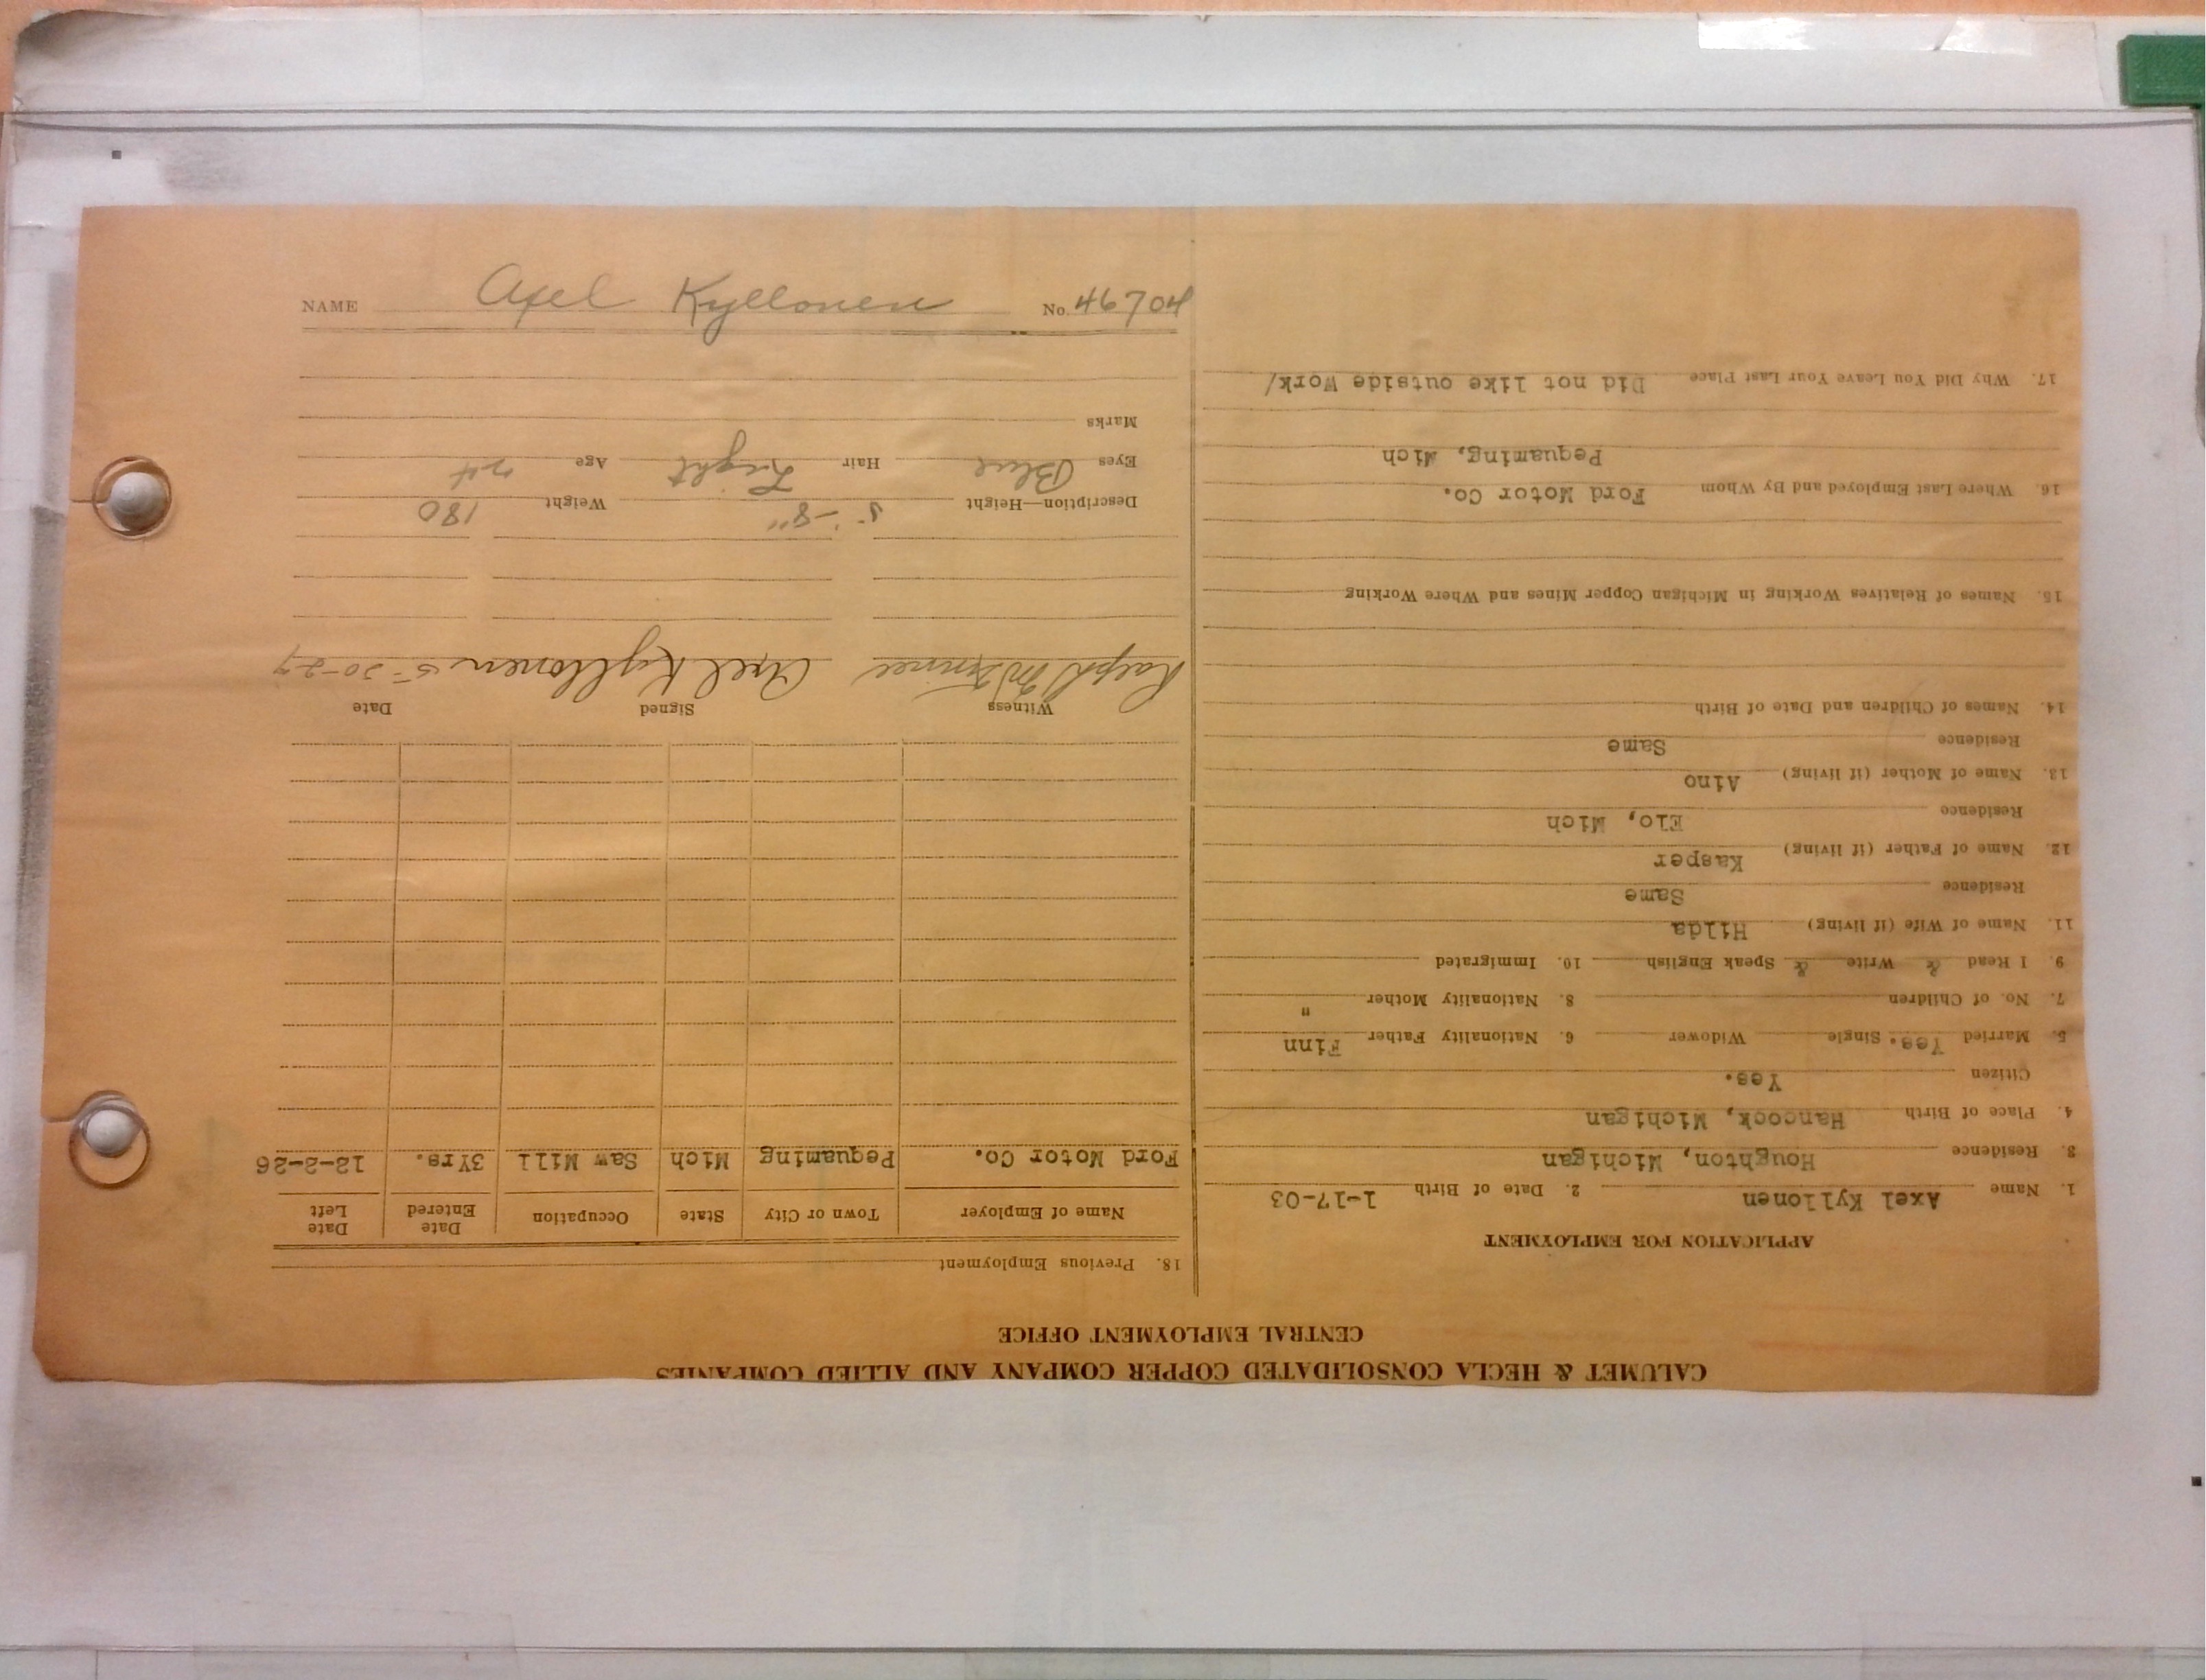 CALUMET & HECLA CONSOLIDATED COPPER COMPANY AND ALLIED COMPANIES
CENTRAL EMPLOYMENT OFFICE
APPLICATION FOR EMPLOYMENT
1. Name Axel Kyllonen 2. Date of Birth 1-17-03
3. Residence Houghton, Michigan
4. Place of Birth Hancock, Michigan
Citizen Yes.
5. Married Yes. Single Widower 6. Nationality Father Finn
7. No. of Children 8. Nationality Mother "
9. I Read & Write & Speak English 10. Immigrated
11. Name of Wife (if living) Hilda
Residence Same
12. Name of Father (if living) Kasper
Residence Elo, Mich
13. Name of Mother (if living) Aino
Residence Same
14. Names of Children and Date of Birth
15. Names of Relatives Working in Michigan Copper Mines and Where Working
16. Where Last Employed and By Whom Ford Motor Co.
Pequaming, Mich
17. Why Did You Leave Your Last Place Did not like outside Work/
18. Previous Employment
Name of Employer Town or City State Occupation Date Entered Date Left
Ford Motor Co. Pequaming Mich Saw Mill 3Yrs. 12-2-26
Witness Signed Date
Ralph Axel Kyllonen 5-20-27
Description—Height 5'-8" Weight 180
Eyes Blue Hair Light Age 24
Marks
NAME Axel Kyllonen No. 46704